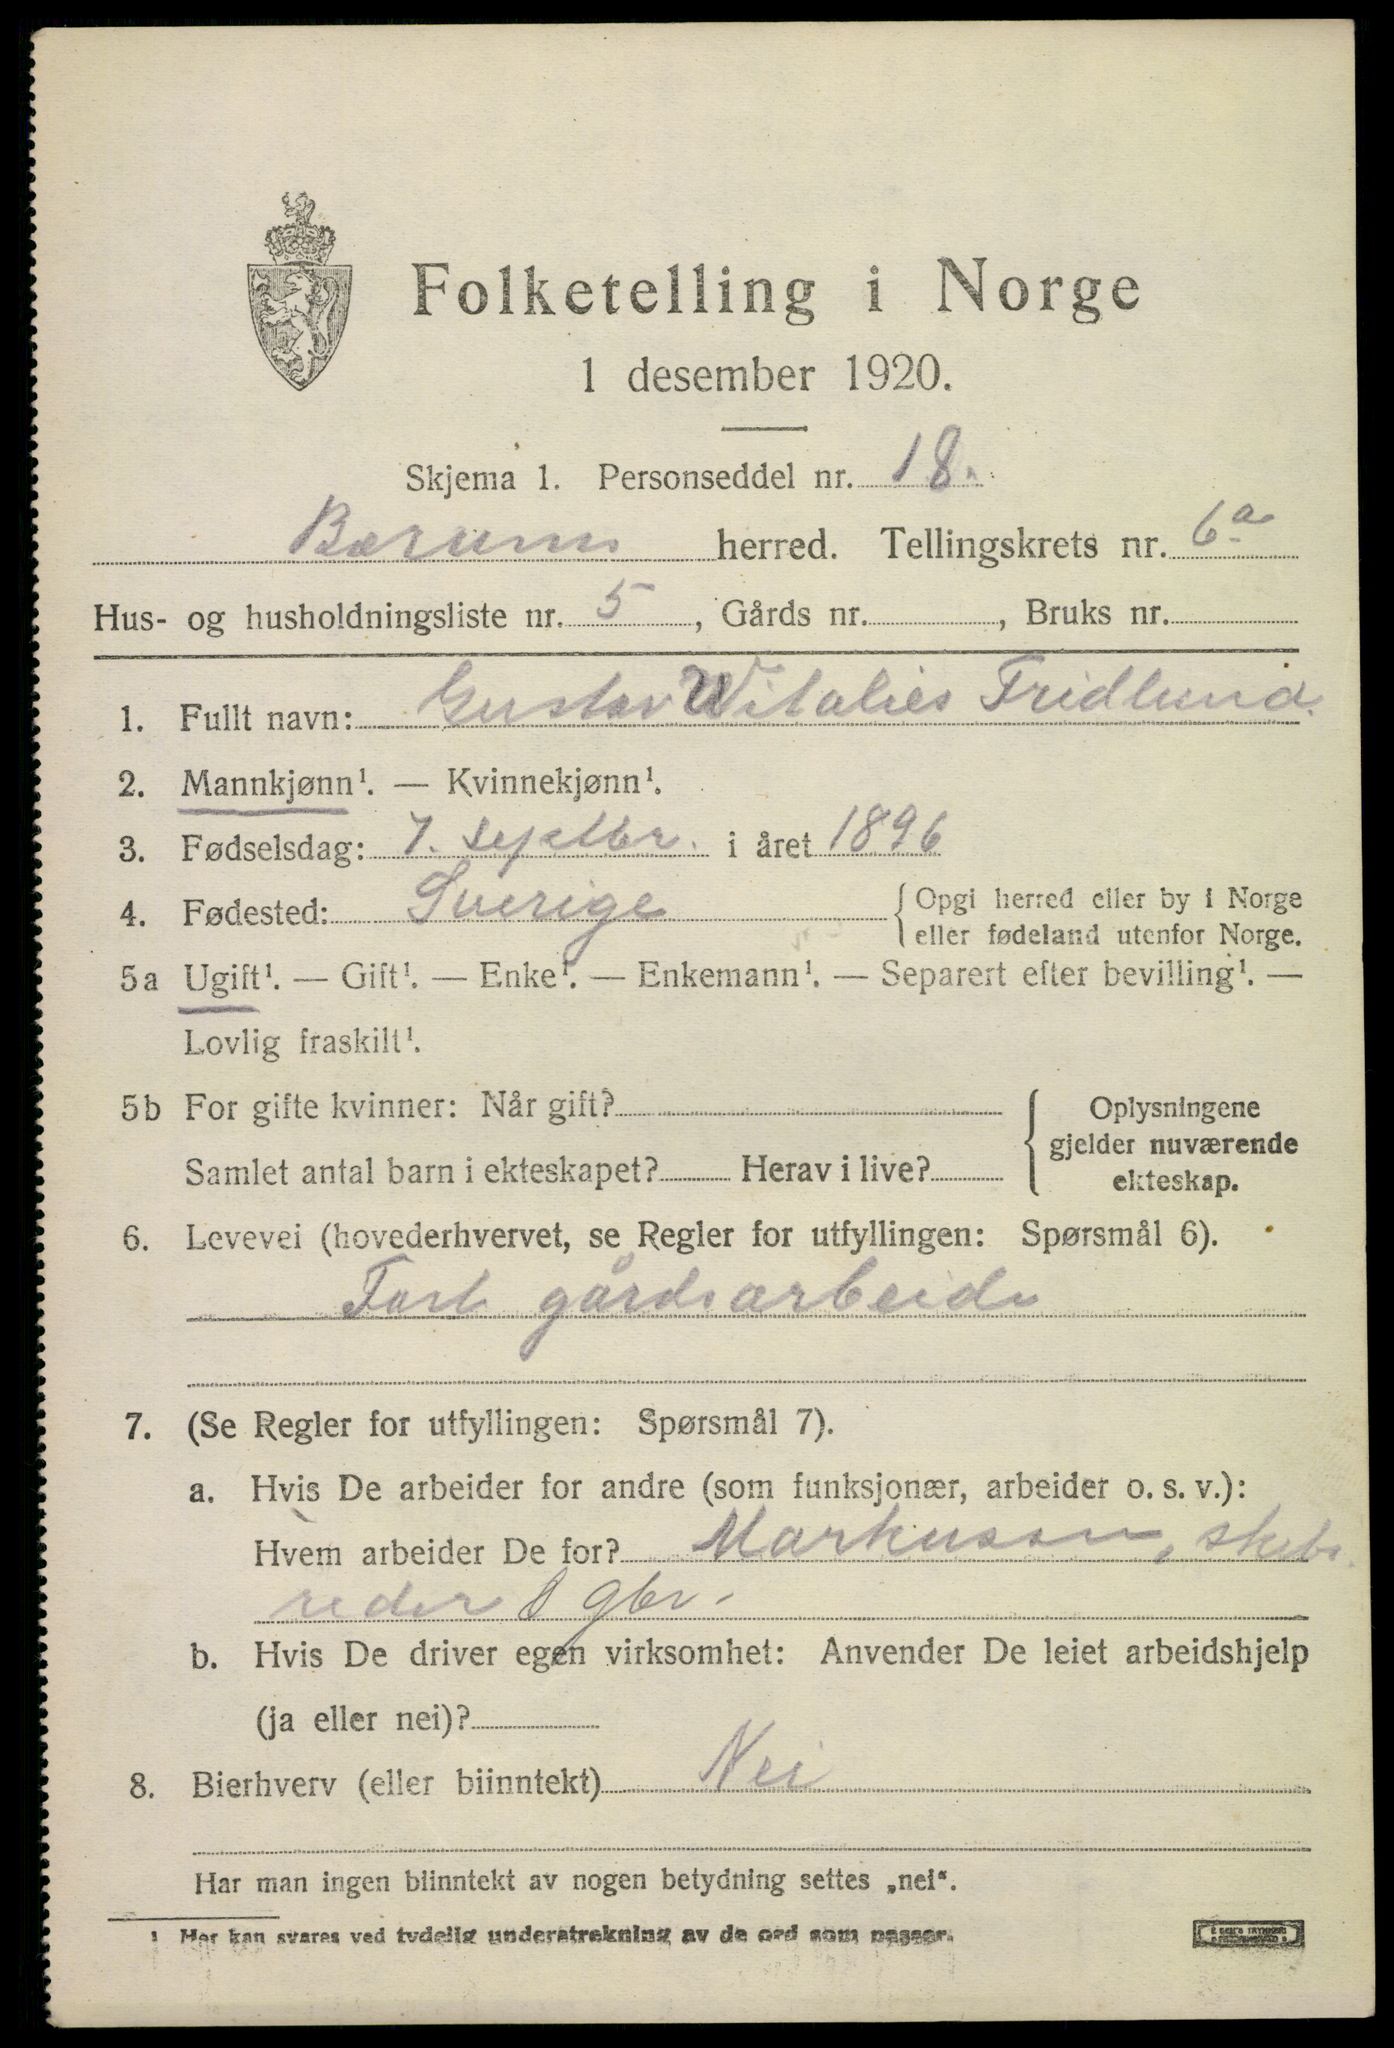 Folketelling i Norge
1 desember 1920.
Skjema 1. Personseddel nr. 18.
Bærum herred. Tellingskrets nr. 6a
Hus- og husholdningsliste nr. 5, Gårds nr. , Bruks nr.
1. Fullt navn: Gustav Witalies Fridlund.
2. Mannkjønn¹. — Kvinnekjønn¹.
3. Fødselsdag: 7. septbr. i året 1896
4. Fødested: Sverige { Opgi herred eller by i Norge
eller fødeland utenfor Norge.
5a Ugift¹. — Gift¹. — Enke¹. — Enkemann¹. — Separert efter bevilling¹. —
Lovlig fraskilt¹.
5b For gifte kvinner: Når gift? { Oplysningene
gjelder nuværende
Samlet antal barn i ekteskapet? Herav i live?
ekteskap.
6. Levevei (hovederhvervet, se Regler for utfyllingen: Spørsmål 6).
Fast gårdsarbeide
7. (Se Regler for utfyllingen: Spørsmål 7).
a. Hvis De arbeider for andre (som funksjonær, arbeider o. s. v.):
Hvem arbeider De for? Markussen, skibs
reder & gbr.
b. Hvis De driver egen virksomhet: Anvender De leiet arbeidshjelp
(ja eller nei)?
8. Bierhverv (eller biinntekt) Nei
Har man ingen biinntekt av nogen betydning settes „nei“.
¹ Her kan svares ved tydelig understrekning av de ord som passer.